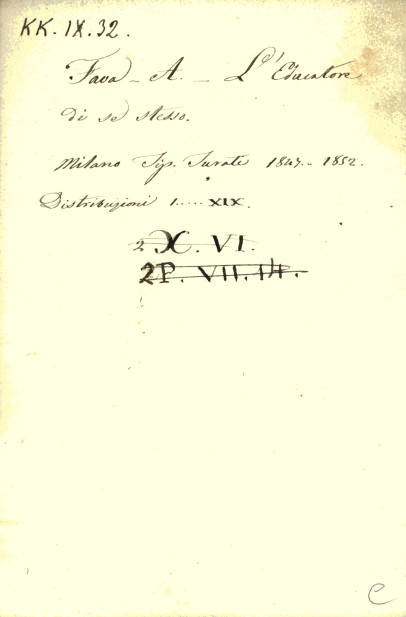 KK. IX. 32.
Fava _ A. _ L'Educatore
di se stesso.
Milano Tip. Turati 1847.. 1852.
Distribuzioni 1..... XIX.
2 X. VI.
2P. VII. 14.
e